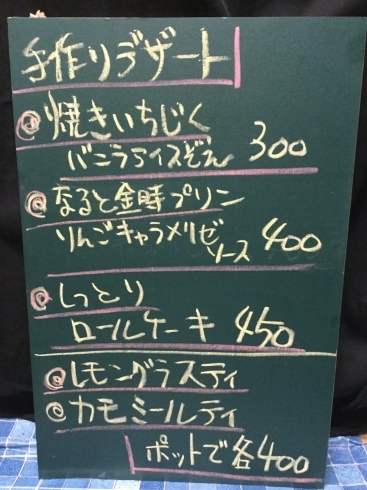 手作りデザート
◎焼きいちじく
バニラアイスぞえ 300
◎なると金時プリン
りんごキャラメリゼ
ソース 400
◎しっとり
ロールケーキ 450
◎レモングラスティ
◎カモミールティ
ポットで各400